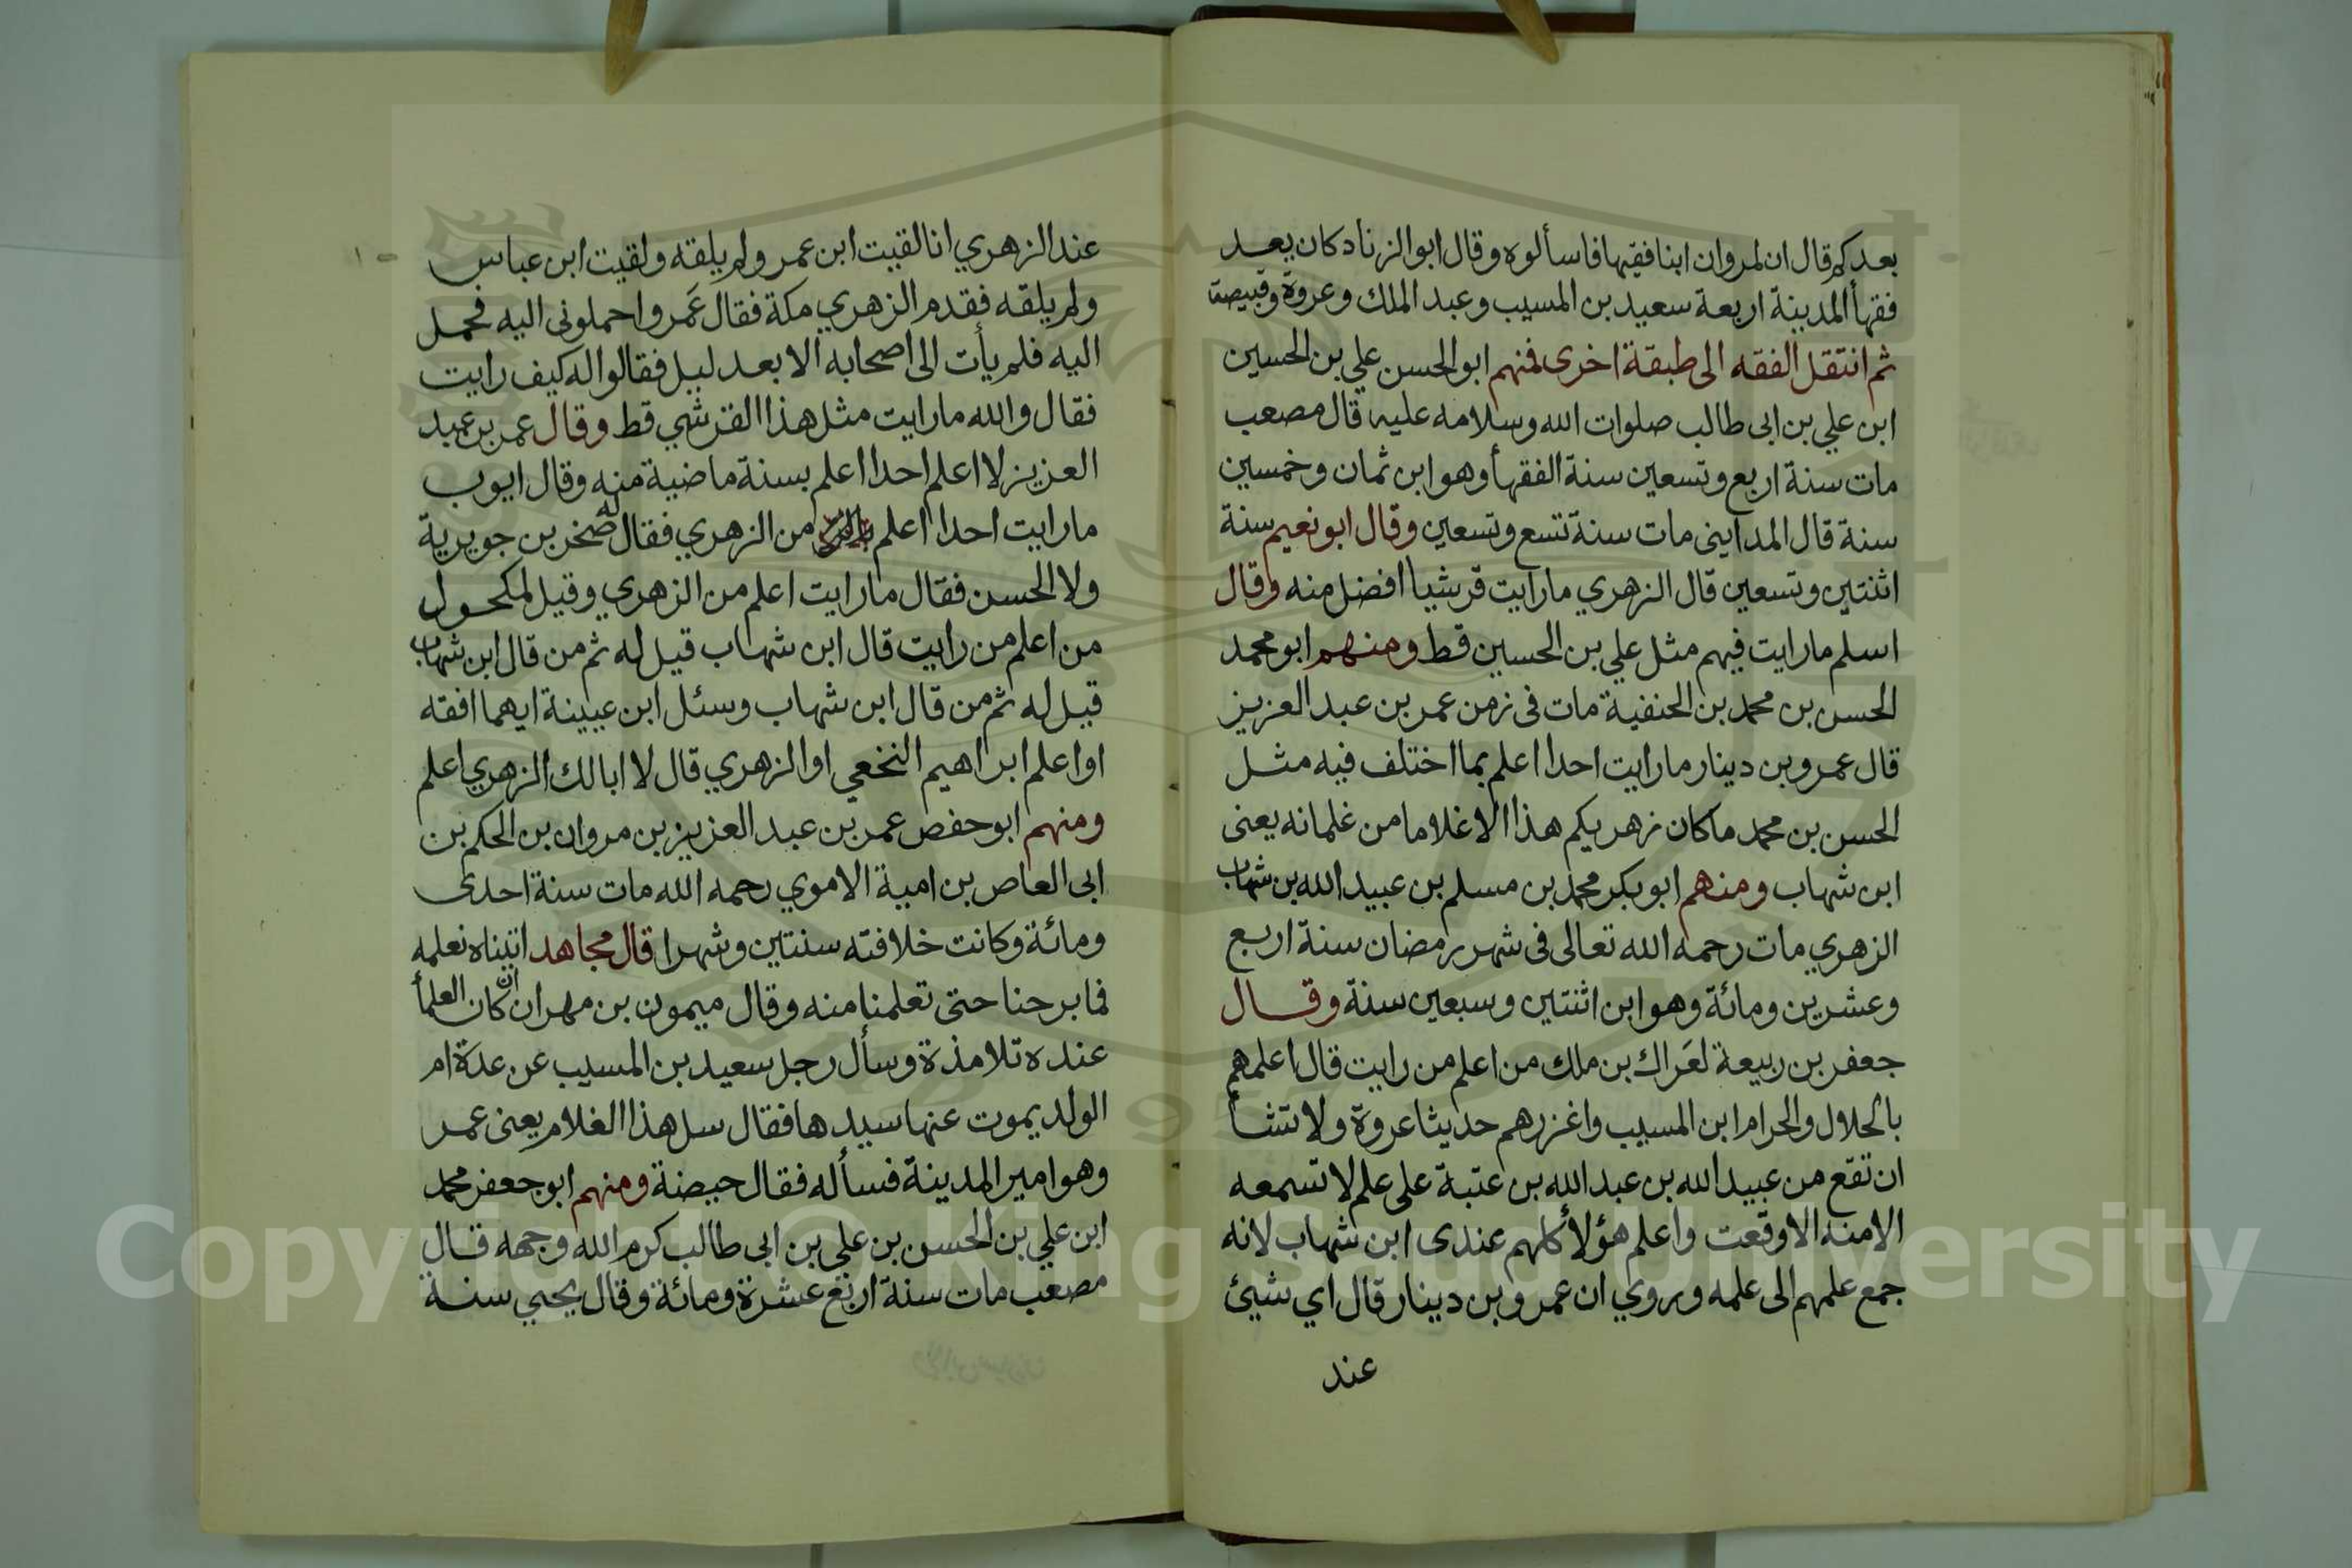 بعدكم قال ان لمروان ابنا فقيها فاسألوه وقال ابو الزناد كان يعد
فقهأ المدينة اربعة سعيد بن المسيب وعبد الملك وعروة وقبيصة
ثم انتقل الفقه الى طبقة اخرى فمنهم ابو الحسن علي بن الحسين
ابن علي بن ابى طالب صلوات الله وسلامه عليه قال مصعب
مات سنة اربع وتسعين سنة الفقهأ وهو ابن ثمان وخمسين
سنة قال المداينى مات سنة تسع وتسعين وقال ابو نعيم سنة
اثنتين وتسعين قال الزهري ما رايت قرشيا افضل منه وقال
اسلم ما رايت فيهم مثل علي بن الحسين قط ومنهم ابو محمد
الحسن بن محمد بن الحنفية مات فى زمن عمر بن عبد العزيز
قال عمرو بن دينار ما رايت احدا اعلم بما اختلف فيه مثل
الحسن بن محمد ما كان زهريكم هذا الا غلاما من غلمانه يعنى
ابن شهاب ومنهم ابو بكر محمد بن مسلم بن عبيد الله بن شهاب
الزهري مات رحمه الله تعالى فى شهر رمضان سنة اربع
وعشرين ومائة وهو ابن اثنتين وسبعين سنة وقال
جعفر بن ربيعة لعَراك بن ملك من اعلم من رايت قال اعلمهم
بالحلال والحرام ابن المسيب واغزرهم حديثا عروة ولا تشأ
ان تقع من عبيد الله بن عبد الله بن عتبة على علم لا تسمعه
الا منه الا وقعت واعلم هؤلأ كلهم عندى ابن شهاب لانه
جمع علمهم الى علمه وروي ان عمرو بن دينار قال اي شيئ
عند
١٠
عند الزهري انا لقيت ابن عمر ولم يلقه ولقيت ابن عباس
ولم يلقه فقدم الزهري مكة فقال عَمرو احملونى اليه فحمل
اليه فلم يأت الى اصحابه الا بعد ليل فقالوا له كيف رايت
فقال والله ما رايت مثل هذا القرشي قط وقال عمر بن عبد
العزيز لا اعلم احدا اعلم بسنة ماضية منه وقال ايوب
ما رايت احدا اعلم من الزهري فقال له صخر بن جويرية
ولا الحسن فقال ما رايت اعلم من الزهري وقيل لمكحول
من اعلم من رايت قال ابن شهاب قيل له ثم من قال ابن شهاب
قيل له ثم من قال ابن شهاب وسئل ابن عيينة ايهما افقه
او اعلم ابراهيم النخعي او الزهري قال لا ابا لك الزهري اعلم
ومنهم ابو حفص عمر بن عبد العزيز بن مروان بن الحكم بن
ابى العاص بن امية الاموي رحمه الله مات سنة احدى
ومائة وكانت خلافته سنتين وشهرا قال مجاهد اتيناه نعلمه
فما برحنا حتى تعلمنا منه وقال ميمون بن مهران ان كان العلمأ
عنده تلامذة وسأل رجل سعيد بن المسيب عن عدة ام
الولد يموت عنها سيدها فقال سل هذا الغلام يعنى عمر
وهو امير المدينة فسأله فقال حيضة ومنهم ابو جعفر محمد
ابن علي بن الحسن بن علي بن ابى طالب كرم الله وجهه قال
مصعب مات سنة اربع عشرة ومائة وقال يحيي سنة
Copyright © King Saud University